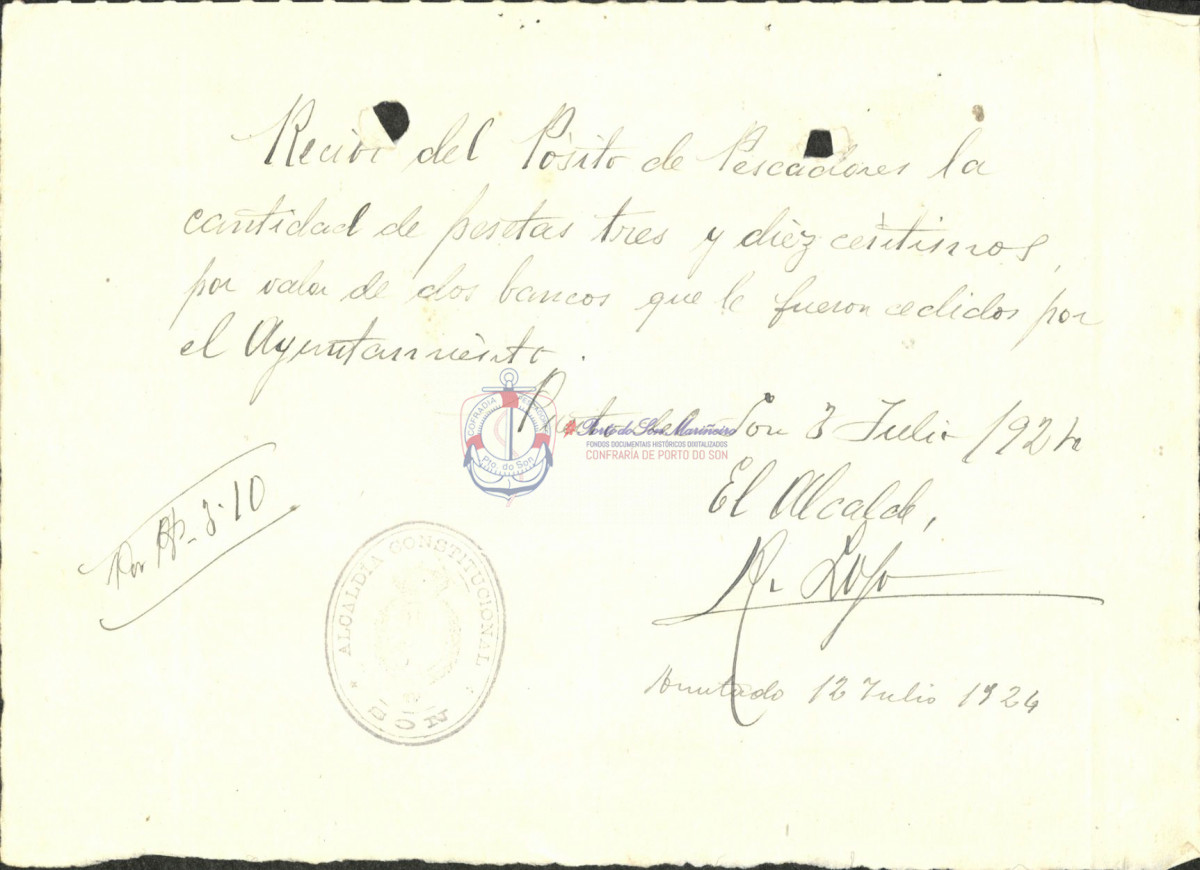 Recivi del Pósito de Pescadores la
cantidad de pesetas tres y diez centimos,
por valor de dos bancos que le fueron cedidos por
el Ayuntamiento.
Puerto del Son 3 Julio 1924
El Alcalde,
R. Lojo
Por Pts 3·10
ALCALDÍA CONSTITUCIONAL
SON
Anutado 12 Julio 1924
COFRADIA PESCADORES
Pto. do Son
#Porto do Son Mariñeiro
FONDOS DOCUMENTAIS HISTÓRICOS DIXITALIZADOS
CONFRARÍA DE PORTO DO SON